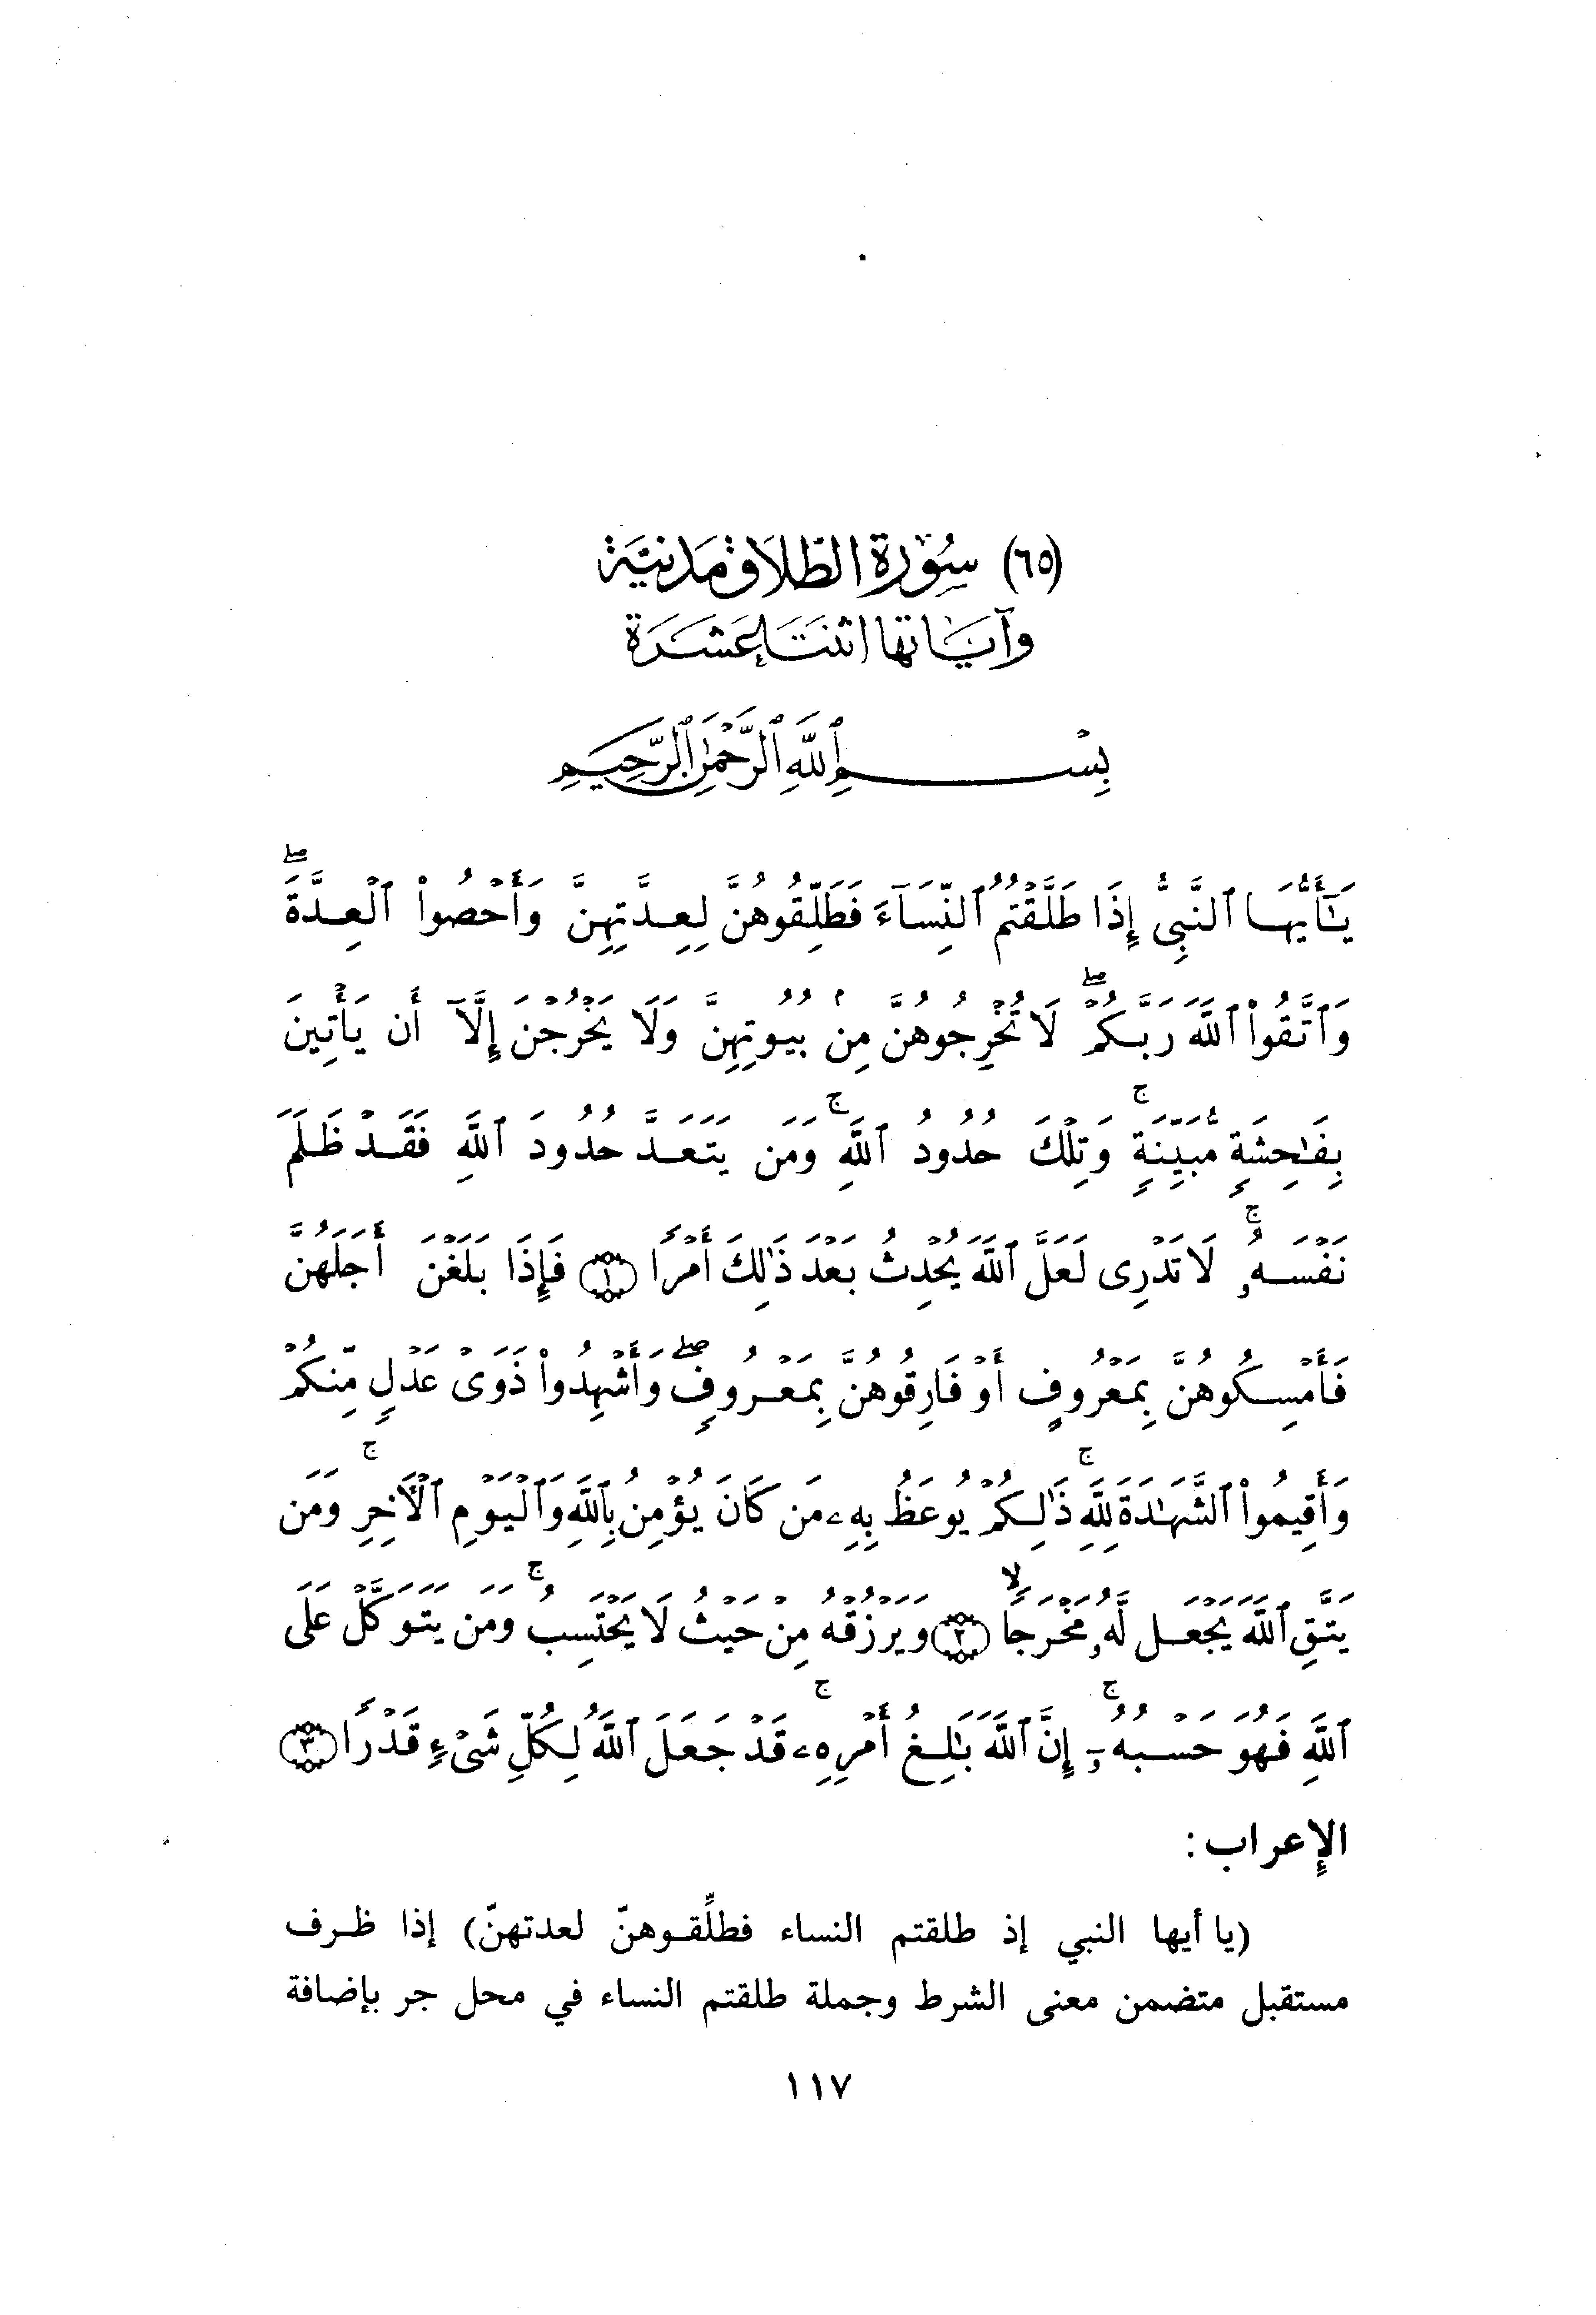 (٦٥) سُوْرَة الطّلَاق مَدَنيَّة
وَآيَاتها اثنَتَا عَشَرَة
بِسْمِ ٱللَّهِ ٱلرَّحْمَٰنِ ٱلرَّحِيمِ
يَٰٓأَيُّهَا ٱلنَّبِىُّ إِذَا طَلَّقْتُمُ ٱلنِّسَآءَ فَطَلِّقُوهُنَّ لِعِدَّتِهِنَّ وَأَحْصُوا۟ ٱلْعِدَّةَ ۖ
وَٱتَّقُوا۟ ٱللَّهَ رَبَّكُمْ ۖ لَا تُخْرِجُوهُنَّ مِنۢ بُيُوتِهِنَّ وَلَا يَخْرُجْنَ إِلَّآ أَن يَأْتِينَ
بِفَٰحِشَةٍ مُّبَيِّنَةٍ ۚ وَتِلْكَ حُدُودُ ٱللَّهِ ۚ وَمَن يَتَعَدَّ حُدُودَ ٱللَّهِ فَقَدْ ظَلَمَ
نَفْسَهُۥ ۚ لَا تَدْرِى لَعَلَّ ٱللَّهَ يُحْدِثُ بَعْدَ ذَٰلِكَ أَمْرًا ﴿١﴾ فَإِذَا بَلَغْنَ أَجَلَهُنَّ
فَأَمْسِكُوهُنَّ بِمَعْرُوفٍ أَوْ فَارِقُوهُنَّ بِمَعْرُوفٍ ۖ وَأَشْهِدُوا۟ ذَوَىْ عَدْلٍ مِّنكُمْ
وَأَقِيمُوا۟ ٱلشَّهَٰدَةَ لِلَّهِ ۚ ذَٰلِكُمْ يُوعَظُ بِهِۦ مَن كَانَ يُؤْمِنُ بِٱللَّهِ وَٱلْيَوْمِ ٱلْأَخِرِ ۚ وَمَن
يَتَّقِ ٱللَّهَ يَجْعَل لَّهُۥ مَخْرَجًا ۙ ﴿٢﴾ وَيَرْزُقْهُ مِنْ حَيْثُ لَا يَحْتَسِبُ ۚ وَمَن يَتَوَكَّلْ عَلَى
ٱللَّهِ فَهُوَ حَسْبُهُۥٓ ۚ إِنَّ ٱللَّهَ بَٰلِغُ أَمْرِهِۦ ۚ قَدْ جَعَلَ ٱللَّهُ لِكُلِّ شَىْءٍ قَدْرًا ﴿٣﴾
الإعراب :
(يا أيها النبي إذ طلقتم النساء فطلِّقوهنّ لعدتهنّ) إذا ظرف
مستقبل متضمن معنى الشرط وجملة طلقتم النساء في محل جر بإضافة
١١٧